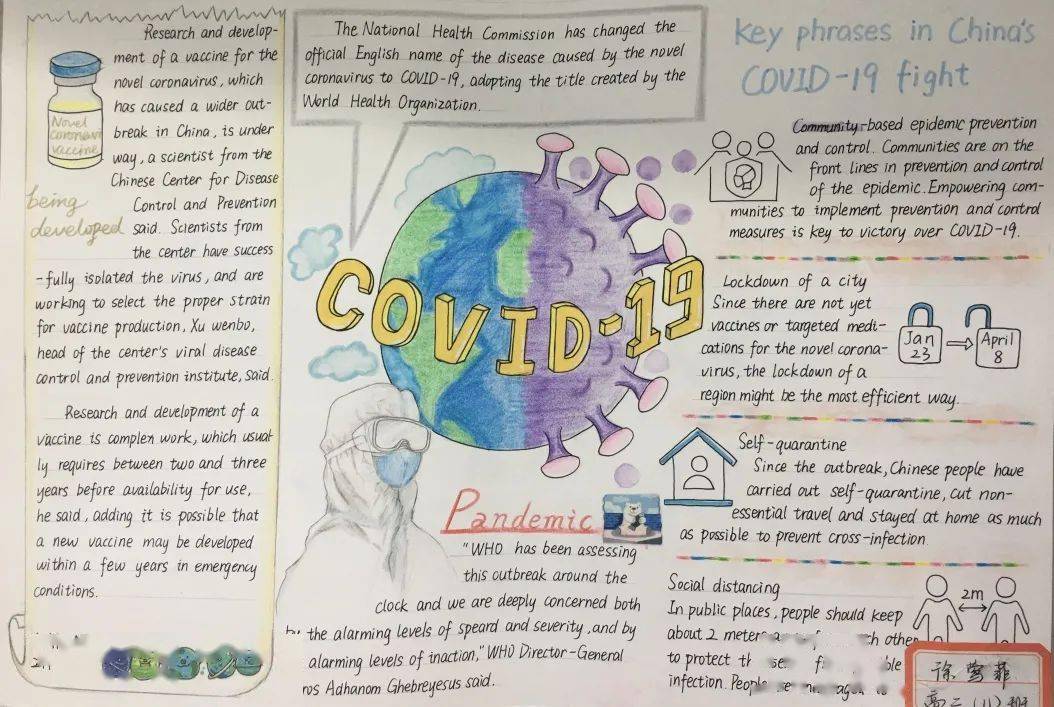 Research and develop-
ment of a vaccine for the
novel coronavirus, which
has caused a wider out-
break in China, is under
way, a scientist from the
Chinese Center for Disease
Control and Prevention
said. Scientists from
the center have success
-fully isolated the virus, and are
working to select the proper strain
for vaccine production, Xu wenbo,
head of the center's viral disease
control and prevention institute, said.
Novel
coronavi
vaccine
being
developed
Research and development of a
vaccine is complex work, which usual-
ly requires between two and three
years before availability for use,
he said, adding it is possible that
a new vaccine may be developed
within a few years in emergency
conditions.
The National Health Commission has changed the
official English name of the disease caused by the novel
coronavirus to COVID-19, adopting the title created by the
World Health Organization.
COVID-19
Pandemic
"WHO has been assessing
this outbreak around the
clock and we are deeply concerned both
the alarming levels of speard and severity, and by
alarming levels of inaction," WHO Director-General
ros Adhanom Ghebreyesus said.
Key phrases in China's
COVID-19 fight
Community-based epidemic prevention
and control. Communities are on the
front lines in prevention and control
of the epidemic. Empowering com-
munities to implement prevention and control
measures is key to victory over COVID-19.
Lockdown of a city
Since there are not yet
vaccines or targeted medi-
cations for the novel corona-
virus, the lockdown of a
region might be the most efficient way.
Jan
23
April
8
Self-quarantine
Since the outbreak, Chinese people have
carried out self-quarantine, cut non-
essential travel and stayed at home as much
as possible to prevent cross-infection
Social distancing
In public places, people should keep
about 2 meter other
to protect
infection. People
2m
徐 菲
高二(11)班